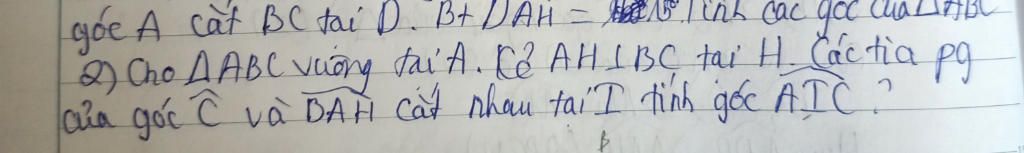 góc A cắt BC tại D. B + DAH = 15 Tính các góc của ΔABC
2) Cho ΔABC vuông tại A. Kẻ AH⊥BC tại H. Các tia pg
của góc Ĉ và BAH cắt nhau tại I tính góc AIC?